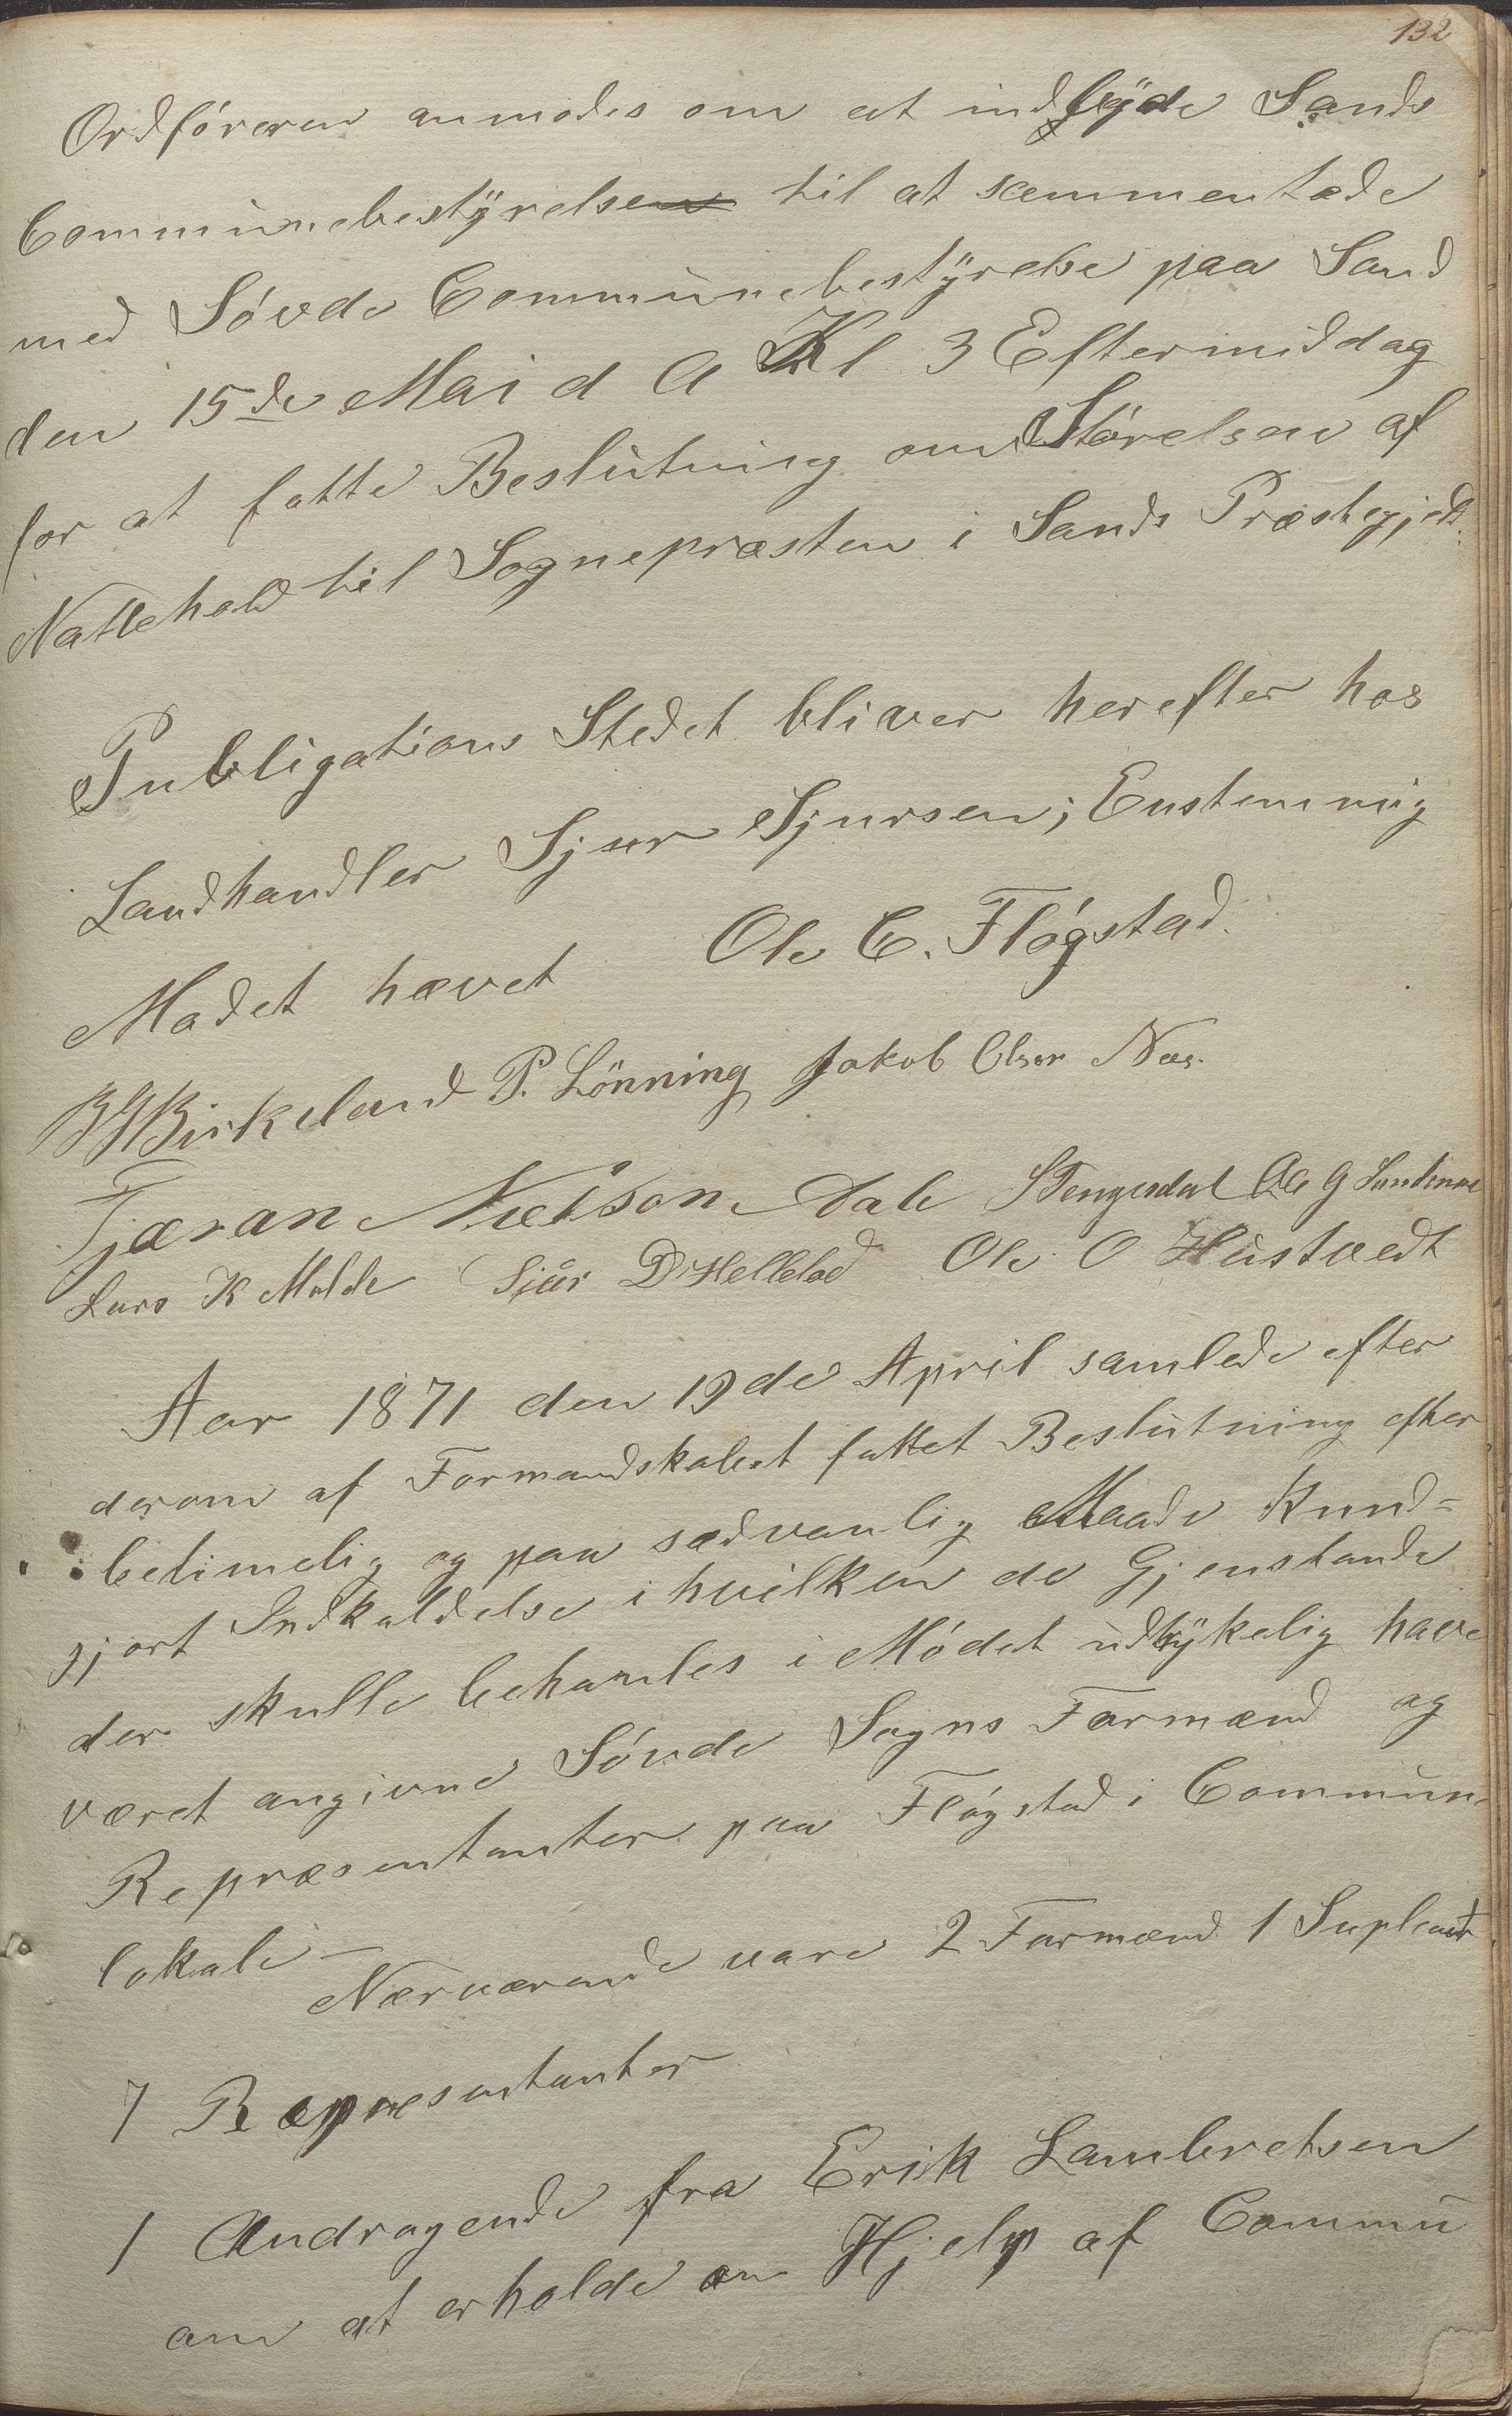 132
Ordføreren anmodes om at indbyde Sands
Communebestyrelse til at sammentræde
med Søvde Communebestyrelse paa Sand
den 15de Mai d A Kl 3 Eftermiddag
for at fatte Beslutning om Størelsen af
Nattehold til Sognepræsten i Sands Præstegjeld.
Publigations Stedet bliver herefter hos
Landhandler Sjur Sjursen; Enstemmig
Mødet hævet Ole C. Fløgstad.
Birkeland P. Lönning Jakob Olsen Næs.
Tjæran Nielson Dale STengesdal Ole G
Lars K Molde Sjur D Hellelad Ole O Hustvedt
Aar 1871 den 19de April samlede efter
derom af Formandskabet fattet Beslutning efter
betimelig og paa sædvanlig Maade Kund=
gjort Indkaldelse i hvilken de Gjenstande
der skulle behanles i Mødet udtrykelig have
været angivne Søvde Sogns Formænd og
Repræsentanter paa Fløgstad i Commune
lokale –
Nærværende vare 2 Formænd 1 Supleant
7 Repræsentanter
1 Andragende fra Erik Lambretsen
om at erholde en Hjelp af Commu